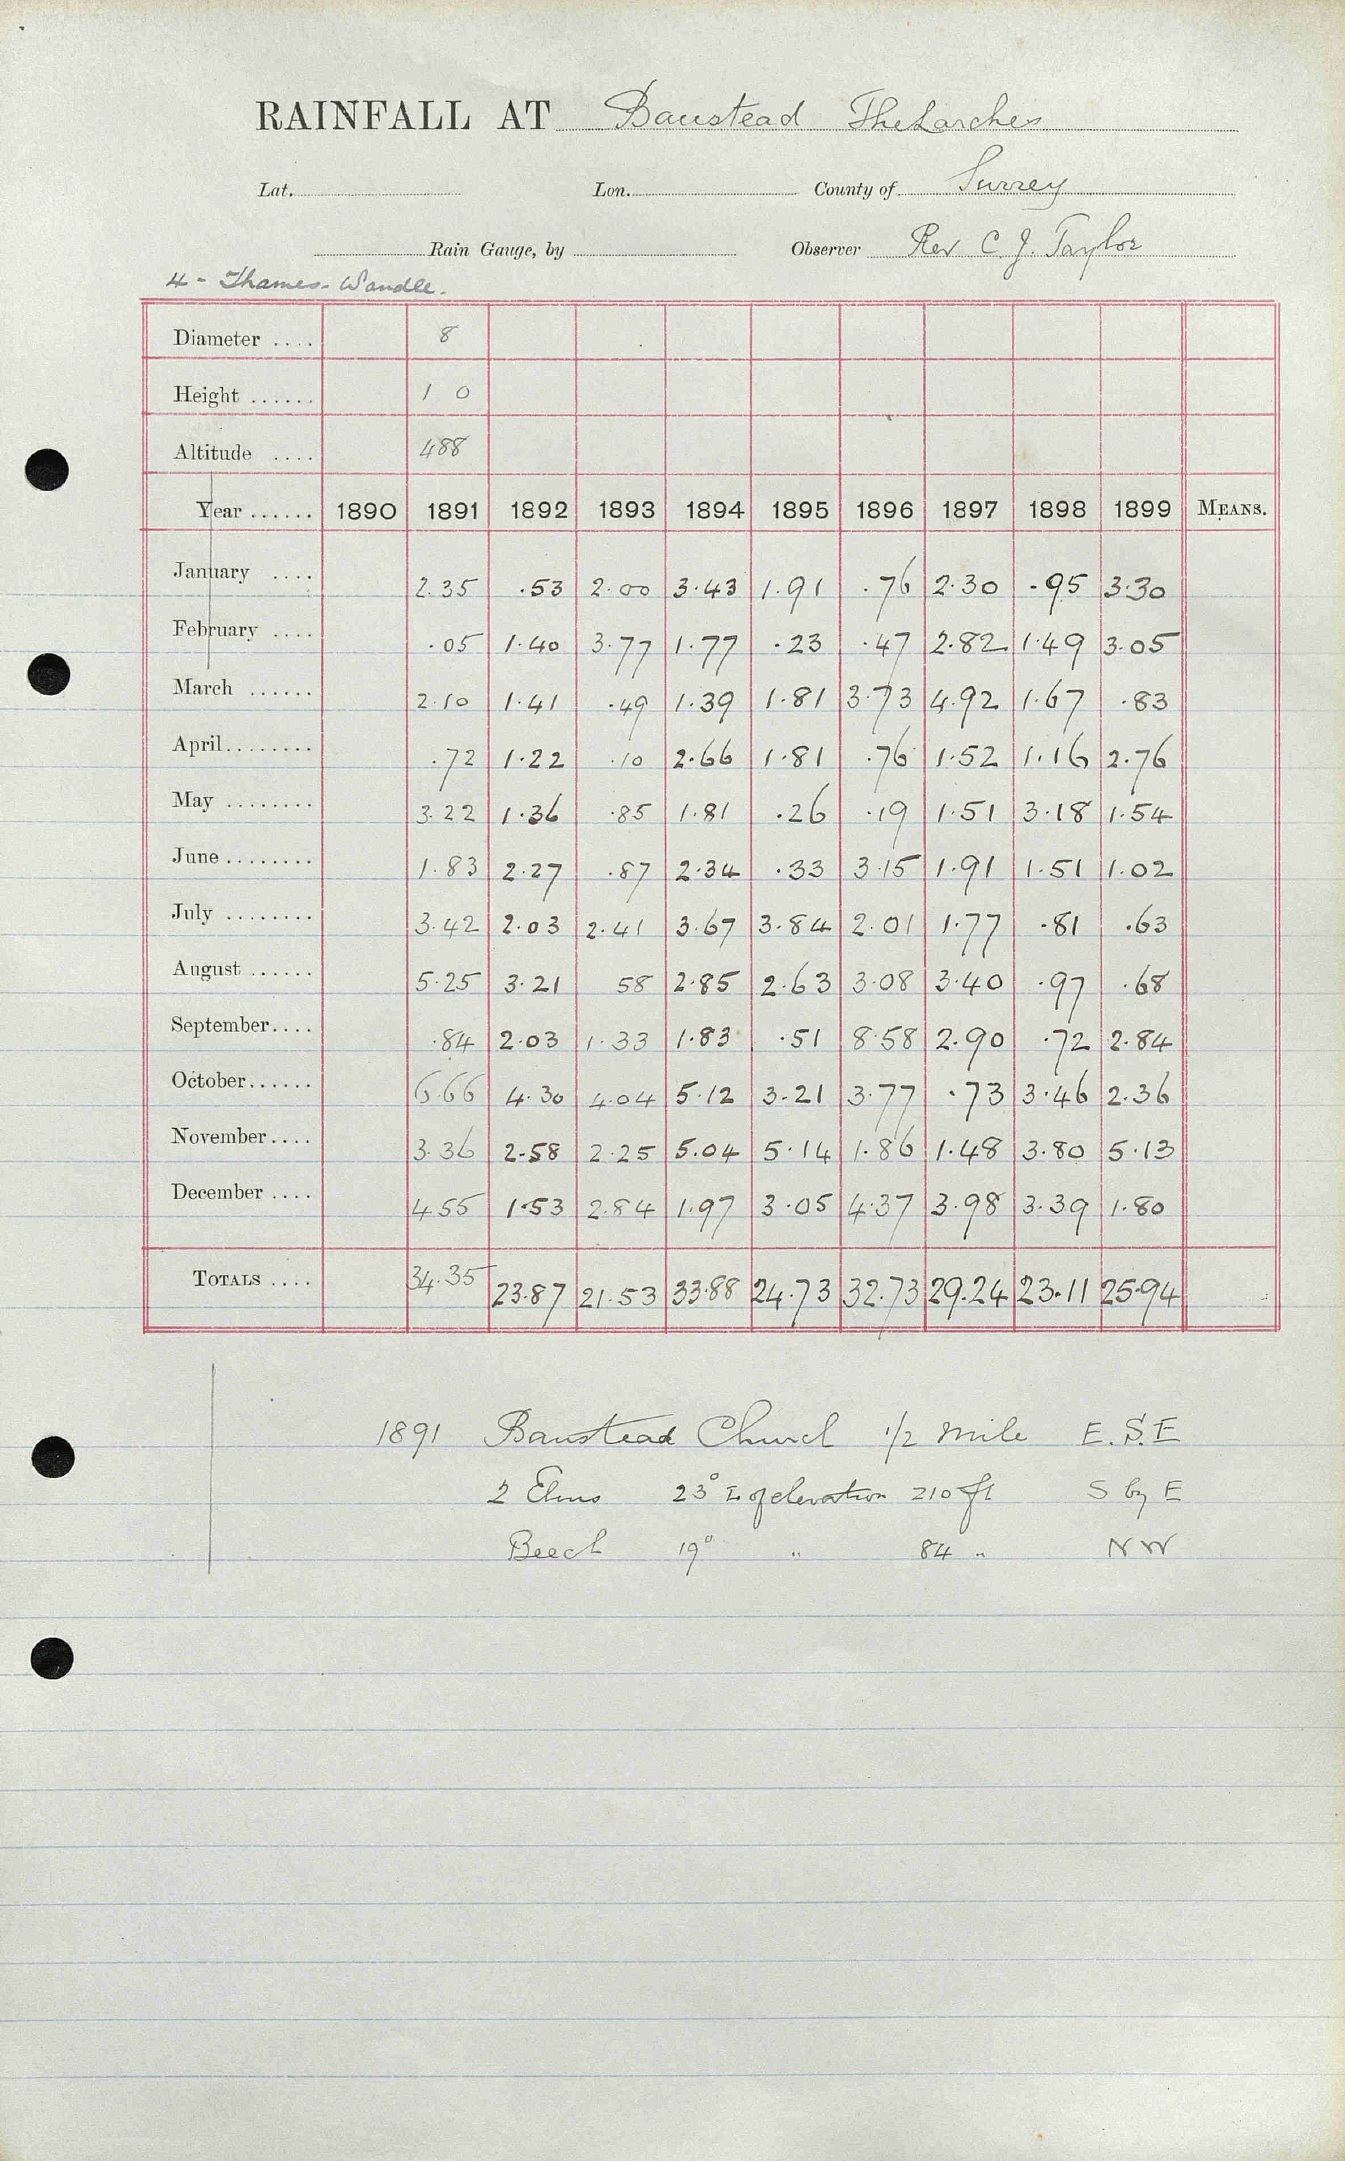 RAINFALL AT Banstead The Larches
Lat. Lon. County of Surrey
Rain Gauge, by Observer Rev C. J. Taylor
4 - Thames - Wandle.
Diameter .... 8
Height ...... 1 0
Altitude .... 488
Year ...... 1890 1891 1892 1893 1894 1895 1896 1897 1898 1899 MEANS.
January .... 2.35 .53 2.00 3.43 1.91 .76 2.30 .95 3.30
February .... .05 1.40 3.77 1.77 .23 .47 2.82 1.49 3.05
March ...... 2.10 1.41 .49 1.39 1.81 3.73 4.92 1.67 .83
April........ .72 1.22 .10 2.66 1.81 .76 1.52 1.16 2.76
May ........ 3.22 1.36 .85 1.81 .26 .19 1.51 3.18 1.54
June ........ 1.83 2.27 .87 2.34 .33 3.15 1.91 1.51 1.02
July ........ 3.42 2.03 2.41 3.67 3.84 2.01 1.77 .81 .63
August ...... 5.25 3.21 58 2.85 2.63 3.08 3.40 .97 .68
September.... .84 2.03 1.33 1.83 .51 8.58 2.90 .72 2.84
October...... 6.66 4.30 4.04 5.12 3.21 3.77 .73 3.46 2.36
November.... 3.36 2.58 2.25 5.04 5.14 1.86 1.48 3.80 5.13
December .... 4.55 1.53 2.84 1.97 3.05 4.37 3.98 3.39 1.80
TOTALS .... 34.35 23.87 21.53 33.88 24.73 32.73 29.24 23.11 25.94
1891 Banstead Church 1/2 mile E.S.E
2 Elms 23° of elevation 210 ft S by E
Beech 19° " 84 " NW